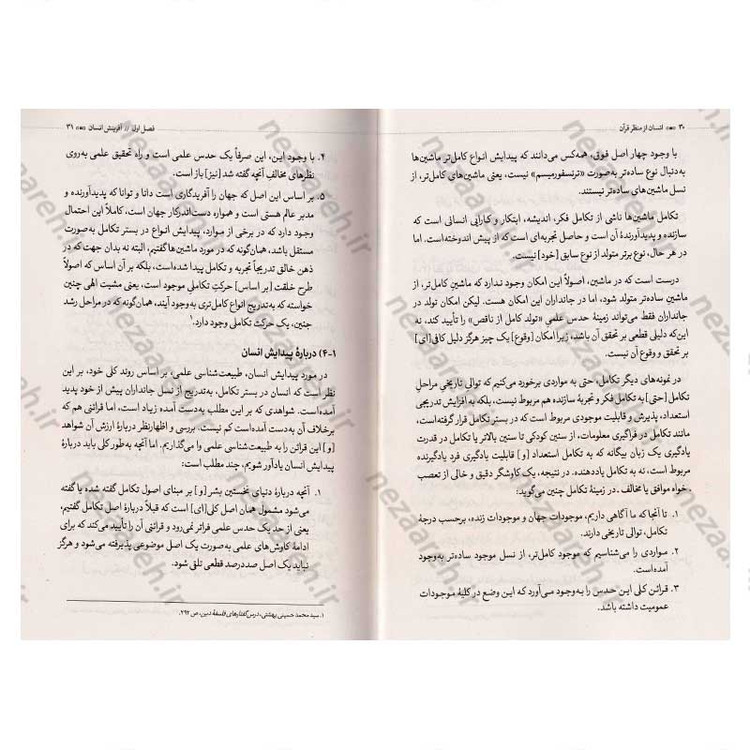 ۳۰ انسان از منظر قرآن
با وجود چهار اصل فوق، همه‌کس می‌دانند که پیدایش انواع کامل‌تر ماشین‌ها
به‌دنبال نوع ساده‌تر به‌صورت «ترنسفورمیسم» نیست، یعنی ماشین‌های کامل‌تر، از
نسل ماشین‌های ساده‌تر نیستند.
تکامل ماشین‌ها ناشی از تکامل فکر، اندیشه، ابتکار و کارایی انسانی است که
سازنده و پدیدآورندهٔ آن است و حاصل تجربه‌ای است که از پیش اندوخته‌است. اما
در هر حال، نوع برتر متولد از نوع سابق [خود] نیست.
درست است که در ماشین، اصولاً این امکان وجود ندارد که ماشین کامل‌تر، از
ماشین ساده‌تر متولد شود، اما در جانداران این امکان هست. لیکن امکان تولد در
جانداران فقط می‌تواند زمینهٔ حدس علمی «تولد کامل از ناقص» را تأیید کند، نه
این‌که دلیلی قطعی بر تحقق آن باشد، زیرا امکان [وقوع] یک چیز هرگز دلیل کافی[ای]
بر تحقق و وقوع آن نیست.
در نمونه‌های دیگر تکامل، حتی به مواردی برخورد می‌کنیم که توالی تاریخی مراحل
تکامل [حتی] به تکامل فکر و تجربهٔ سازنده هم مربوط نیست، بلکه به افزایش تدریجی
استعداد، پذیرش و قابلیت موجودی مربوط است که در بستر تکامل قرار گرفته‌است،
مانند تکامل در فراگیری معلومات، از سنین کودکی تا سنین بالاتر یا تکامل در قدرت
یادگیری یک زبان بیگانه که به تکامل استعداد [و] قابلیت یادگیری فرد یادگیرنده
مربوط است، نه به تکامل یاددهنده. در نتیجه، یک کاوشگر دقیق و خالی از تعصب
خواه موافق یا مخالف، در زمینهٔ تکامل چنین می‌گوید:
۱. تا آنجا که ما آگاهی داریم، موجودات جهان و موجودات زنده، برحسب درجهٔ
تکامل، توالی تاریخی دارند.
۲. مواردی را می‌شناسیم که موجود کامل‌تر، از نسل موجود ساده‌تر به‌وجود
آمده‌است.
۳. قرائن کلی این حدس را به‌وجود می‌آورد که این وضع در کلیهٔ موجودات
عمومیت داشته باشد.
فصل اول // آفرینش انسان ۳۱
۴. با وجود این، این صرفاً یک حدس علمی است و راه تحقیق علمی به‌روی
نظرهای مخالفِ آنچه گفته شد [نیز] باز است.
۵. بر اساس این اصل که جهان را آفریدگاری است دانا و توانا که پدیدآورنده و
مدبر عالم هستی است و همواره دست‌اندرکار جهان است، کاملاً این احتمال
وجود دارد که در برخی از موارد، پیدایش انواع در بستر تکامل به‌صورت
مستقل باشد، همان‌گونه که در مورد ماشین‌ها گفتیم، البته نه بدان جهت که در
ذهن خالق تدریجاً تجربه و تکامل پیدا شده‌است، بلکه بر آن اساس که اصولاً
طرح خلقت [بر اساس] حرکتِ تکاملی موجود است، یعنی مشیت الهی چنین
خواسته که به‌تدریج انواع کامل‌تری به‌وجود آیند، همان‌گونه که در مراحل رشد
جنین، یک حرکتِ تکاملی وجود دارد.۱
۱-۴) دربارهٔ پیدایش انسان
در مورد پیدایش انسان، طبیعت‌شناسی علمی، بر اساس روند کلی خود، بر این
نظر است که انسان در بستر تکامل، به‌تدریج از نسل جانداران پیش از خود پدید
آمده‌است. شواهدی که بر این مطلب به‌دست آمده زیاد است، اما قرائنی هم که
برخلاف آن به‌دست آمده‌است کم نیست. بررسی و اظهارنظر دربارهٔ ارزش آن شواهد
[و] این قرائن را به طبیعت‌شناسی علمی وا می‌گذاریم. اما آنچه به‌طور کلی باید دربارهٔ
پیدایش انسان یادآور شویم، چند مطلب است:
۱. آنچه دربارهٔ دنیای نخستین بشر [و] بر مبنای اصول تکامل گفته شده یا گفته
می‌شود مشمول همان اصل کلی[ای] است که قبلاً دربارهٔ اصل تکامل گفتیم،
یعنی از حد یک حدس علمی فراتر نمی‌رود و قرائنی آن را تأیید می‌کند که
ادامهٔ کاوش‌های علمی به‌صورت یک اصل موضوعی پذیرفته می‌شود و هرگز
نباید یک اصل صددرصد قطعی تلقی شود.
۱. سید محمد حسینی بهشتی، درس‌گفتارهای فلسفهٔ دین، ص ۲۹۲.
nezaareh.ir